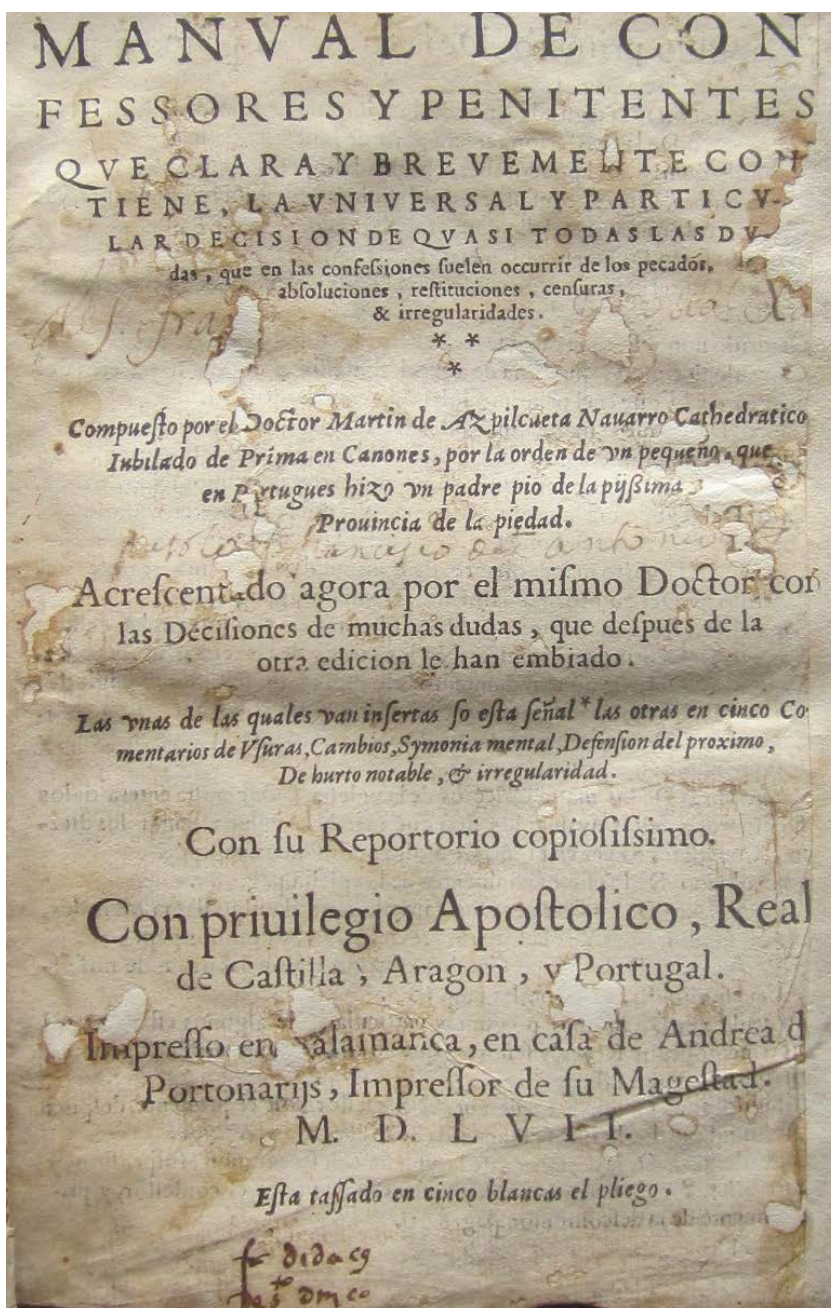 MANVAL DE CON
FESSORES Y PENITENTES
QVE CLARA Y BREVEMENTE CON
TIENE, LA VNIVERSAL Y PARTICV-
LAR DECISION DE QVASI TODAS LAS DV-
das, que en las confeſsiones ſuelen occurrir de los pecados,
abſoluciones, reſtituciones, cenſuras,
& irregularidades.
* *
*
Compueſto por el Doctor Martin de Azpilcueta Nauarro Cathedratico
Iubilado de Prima en Canones, por la orden de vn pequeño, que
en Portugues hizo vn padre pio de la pijſsima
Prouincia de la piedad.
Acreſcentado agora por el miſmo Doctor con
las Deciſiones de muchas dudas, que deſpues de la
otra edicion le han embiado.
Las vnas de las quales van inſertas ſo eſta ſeñal * las otras en cinco Co-
mentarios de Vſuras, Cambios, Symonia mental, Defenſion del proximo,
De hurto notable, & irregularidad.
Con ſu Reportorio copioſiſsimo.
Con priuilegio Apoſtolico, Real
de Caſtilla, Aragon, y Portugal.
Impreſſo en Salamanca, en caſa de Andrea d
Portonarijs, Impreſſor de ſu Mageſtad.
M. D. L V I I.
Eſta taſſado en cinco blancas el pliego.